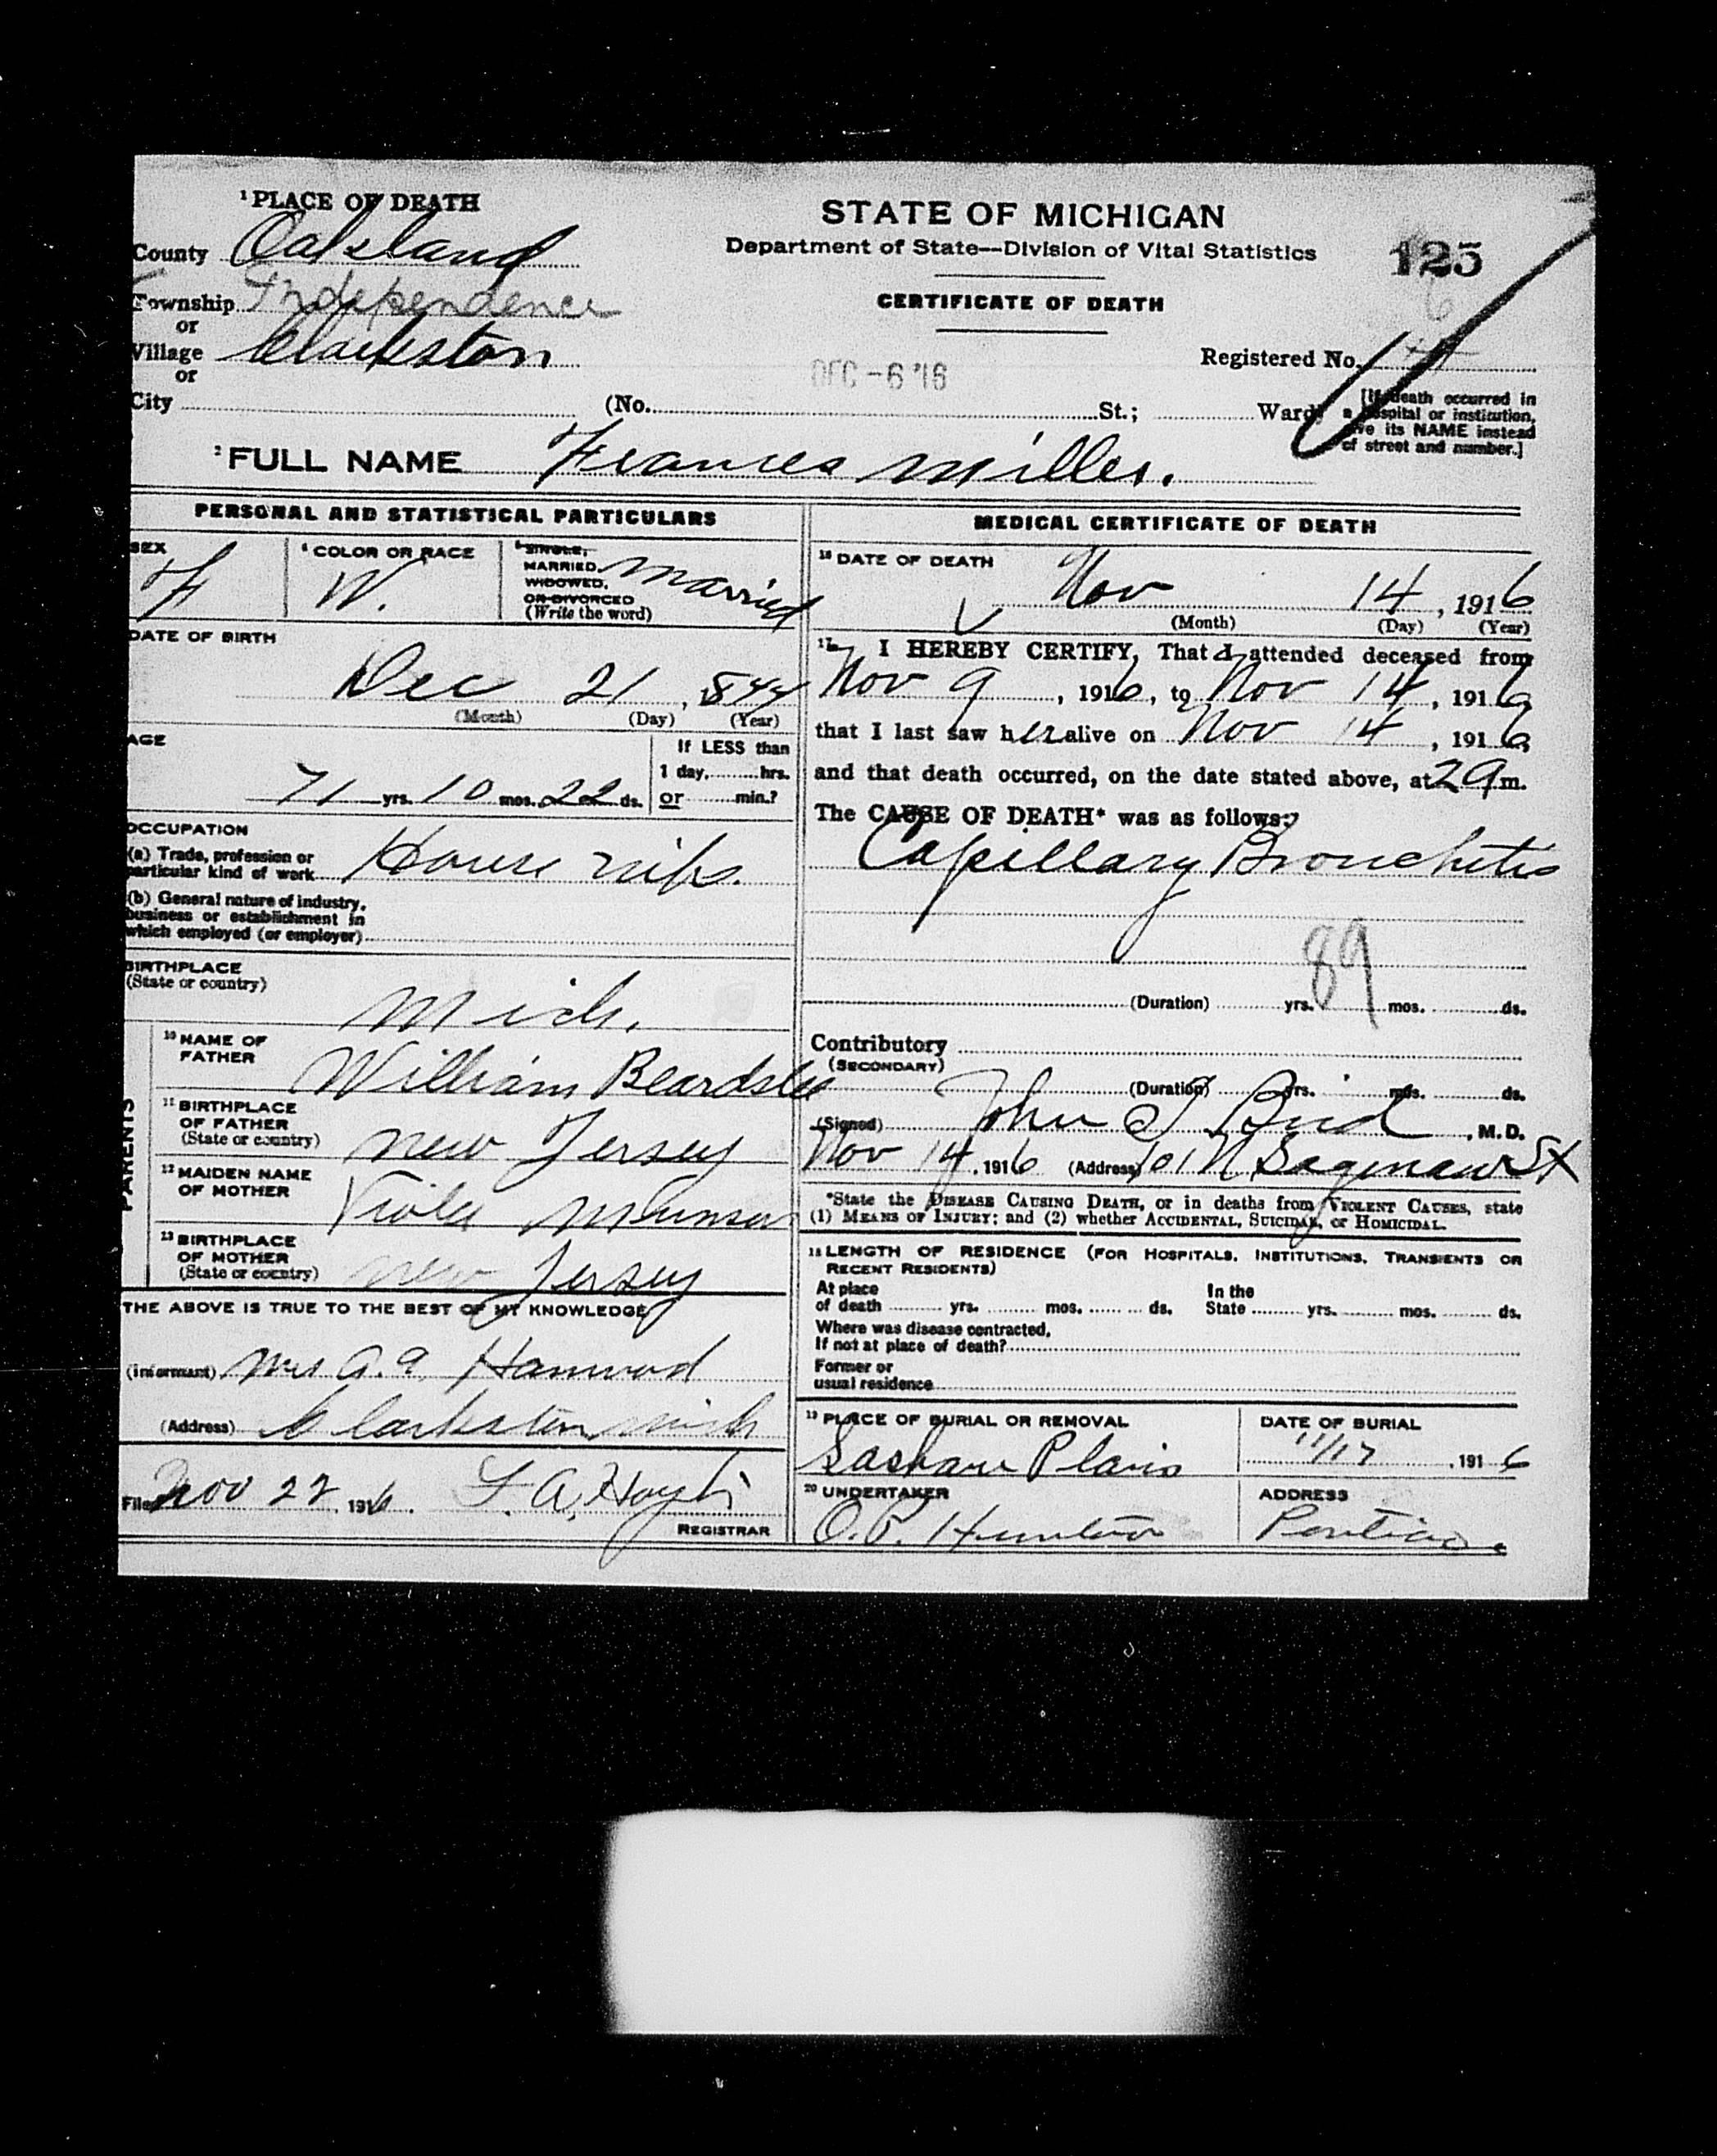 ¹ PLACE OF DEATH
STATE OF MICHIGAN
Department of State—Division of Vital Statistics
125
6
County Oakland
Township Independence
CERTIFICATE OF DEATH
or
Village Clarkston
Registered No.
or
DEC -6 '16
City (No. St.; Ward)
[If death occurred in
a hospital or institution,
give its NAME instead
of street and number.]
² FULL NAME Frances Miller.
PERSONAL AND STATISTICAL PARTICULARS
SEX F
⁴ COLOR OR RACE W.
⁵ SINGLE,
MARRIED,
WIDOWED,
OR DIVORCED
(Write the word)
Married
DATE OF BIRTH
Dec 21, 844
(Month) (Day) (Year)
AGE
71 yrs. 10 mos. 22 ds.
If LESS than
1 day, hrs.
or min.?
OCCUPATION
(a) Trade, profession or
particular kind of work House wife.
(b) General nature of industry,
business or establishment in
which employed (or employer)
BIRTHPLACE
(State or country)
Mich.
PARENTS
¹⁰ NAME OF
FATHER
William Beardslee
¹¹ BIRTHPLACE
OF FATHER
(State or country) New Jersey
¹² MAIDEN NAME
OF MOTHER Viola
¹³ BIRTHPLACE
OF MOTHER
(State or country) New Jersey
THE ABOVE IS TRUE TO THE BEST OF MY KNOWLEDGE
(Informant) Mrs A. A.
(Address) Clarkston Mich
Filed Nov 22, 1916. L. A.
REGISTRAR
MEDICAL CERTIFICATE OF DEATH
¹⁶ DATE OF DEATH
Nov 14, 1916
(Month) (Day) (Year)
¹⁷ I HEREBY CERTIFY, That I attended deceased from
Nov 9, 1916, to Nov 14, 1916
that I last saw her alive on Nov 14, 1916
and that death occurred, on the date stated above, at 2 a m.
The CAUSE OF DEATH* was as follows:
Capillary Bronchitis
89
(Duration) yrs. mos. ds.
Contributory
(SECONDARY)
(Duration) yrs. mos. ds.
(Signed) John , M. D.
Nov 14, 1916 (Address) 101 N Saginaw St
*State the DISEASE CAUSING DEATH, or in deaths from VIOLENT CAUSES, state
(1) MEANS OF INJURY; and (2) whether ACCIDENTAL, SUICIDAL, or HOMICIDAL.
¹⁸ LENGTH OF RESIDENCE (FOR HOSPITALS, INSTITUTIONS, TRANSIENTS OR
RECENT RESIDENTS)
At place
of death yrs. mos. ds.
In the
State yrs. mos. ds.
Where was disease contracted,
If not at place of death?
Former or
usual residence
¹⁹ PLACE OF BURIAL OR REMOVAL
Sashaw Plains
DATE OF BURIAL
11/17, 1916
²⁰ UNDERTAKER
O. P.
ADDRESS
Pontiac.